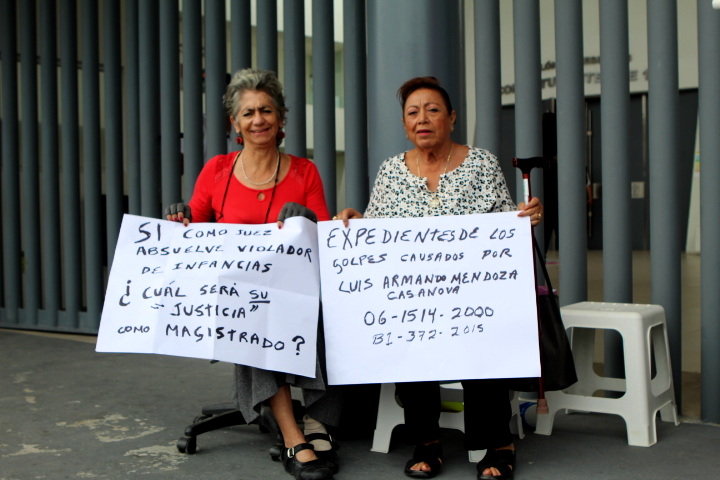 SI COMO JUEZ
ABSUELVE VIOLADOR
DE INFANCIAS
¿CUÁL SERÁ SU
"JUSTICIA"
COMO MAGISTRADO?
EXPEDIENTES DE LOS
GOLPES CAUSADOS POR
LUIS ARMANDO MENDOZA
CASANOVA
06-1514-2000
BI-372-2015